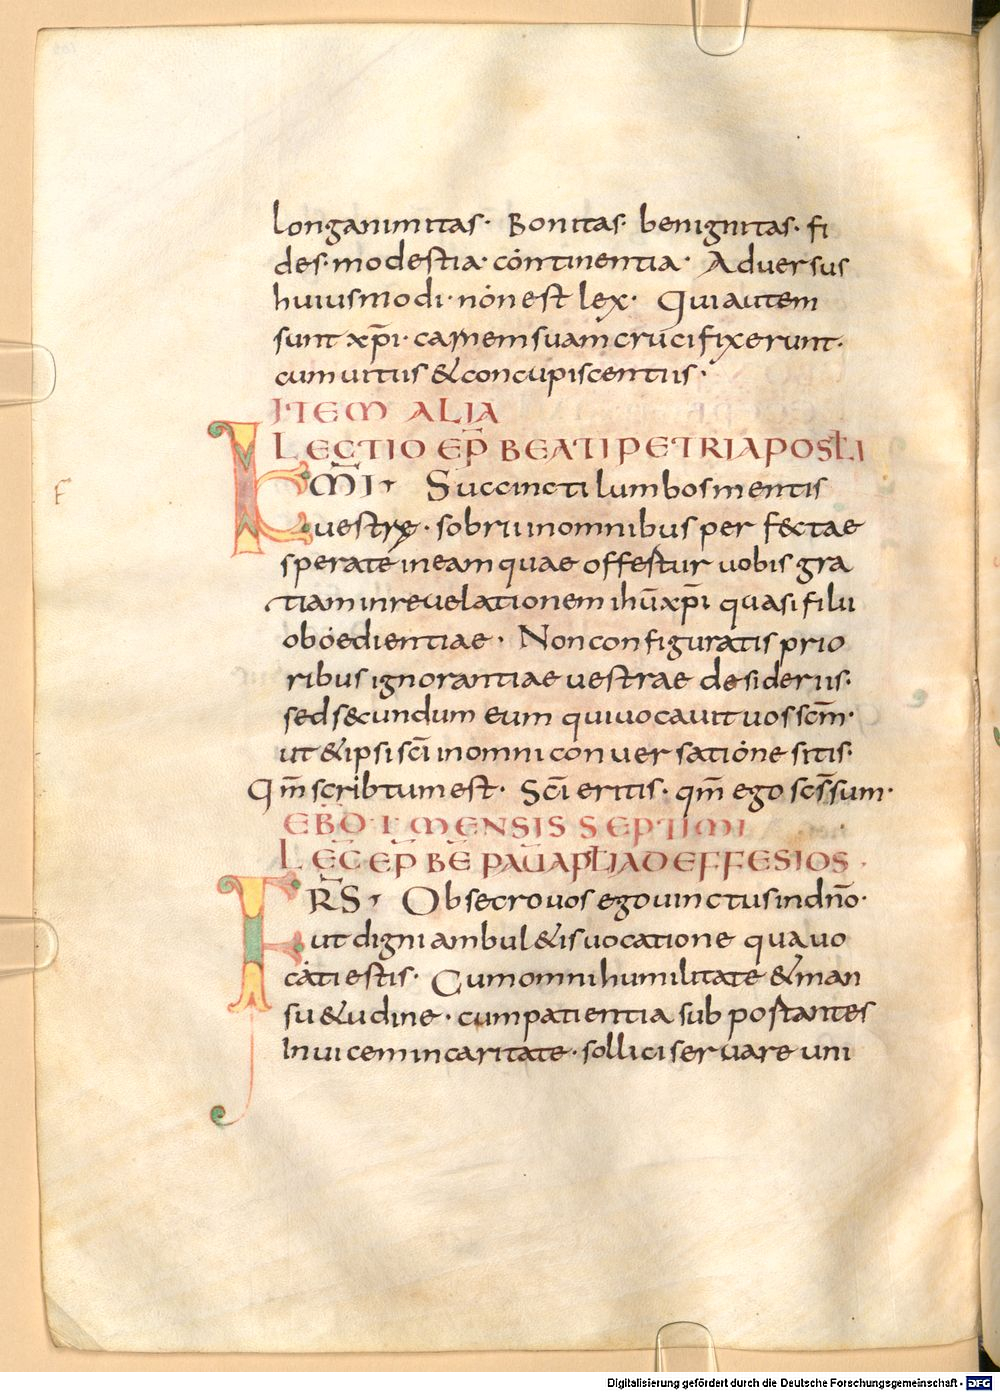 longanimitas· Bonitas· benignitas· fi
des· modestia· continentia· Adversus
huiusmodi· non est lex· Qui autem
sunt xp̄i· carnem suam crucifixerunt·
cum uitiis & concupiscentiis·
ITEM ALIA
LECTIO EP̄ BEATI PETRI APOSTLI
K̄MI· Succincti lumbos mentis
F
uestrę· sobrii in omnibus perfectae
sperate in eam quae offestur uobis gra
tiam in reuelationem ihū xp̄i quasi filii
oboedientiae· Non configuratis prio
ribus ignorantiae uestrae desideriis·
sed secundum eum qui uocauit uos scm̄·
ut & ipsi scī in omni conuersatione sitis·
Qm̄ scribtum est· Scī eritis· qm̄ ego scs̄ sum·
EBD· I· MENSIS SEPTIMI
LEC̄ EP̄ BĒ PAŪ APTLI AD EFFESIOS·
FR̄S· Obsecro uos ego uinctus in dn̄o·
ut digni ambul&is uocatione qua uo
cati estis· Cum omni humilitate & man
su&udine· cum patientia subpostantes
Inuicem in caritate· sollici seruare uni
Digitalisierung gefördert durch die Deutsche Forschungsgemeinschaft - DFG